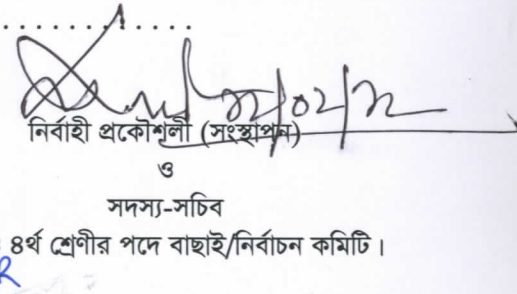 নির্বাহী প্রকৌশলী (সংস্থাপন)
ও
সদস্য-সচিব
৪র্থ শ্রেণীর পদে বাছাই/নির্বাচন কমিটি।